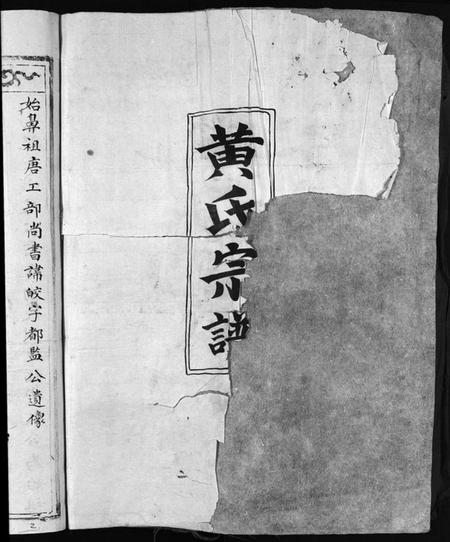 黄氏宗譜
始鼻祖唐工部尚書諱皎字都監公遺像
2